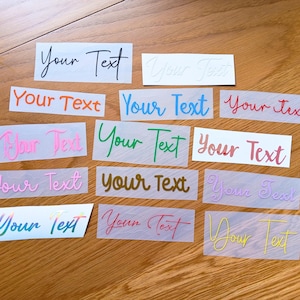 Your Text
Your Text
Your Text
Your Text
Your Text
Your Text
Your Text
Your Text
Your Text
Your Text
Your Text
Your Text
Your Text
Your Text